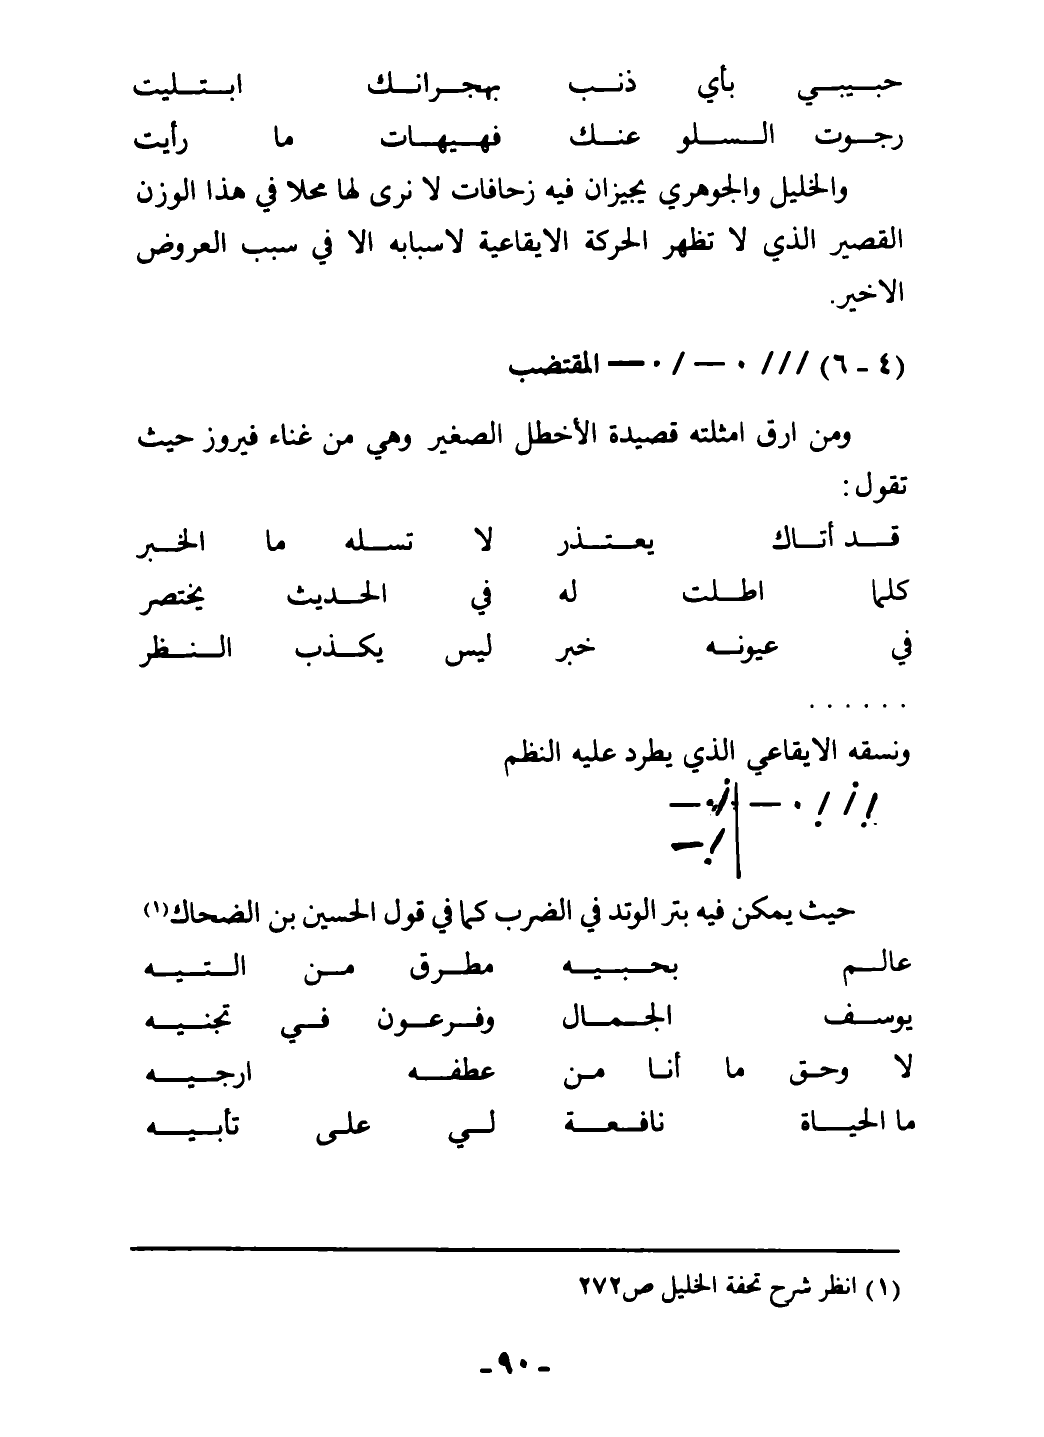 حبـيبـي بأي ذنـب بهجـرانـك ابـتـليت
رجـوت الـسـلو عنـك فهـيهـات ما رأيت
والخليل والجوهري يجيزان فيه زحافات لا نرى لها محلا في هذا الوزن
القصير الذي لا تظهر الحركة الايقاعية لاسبابه الا في سبب العروض
الاخير.
(٤ - ٦) /// ٠ — / ٠ — المقتضب
ومن ارق امثلته قصيدة الأخطل الصغير وهي من غناء فيروز حيث
تقول:
قـد أتـاك يعـتـذر لا تسـله ما الخـبر
كلما اطـلت له في الحـديث يختصر
في عيونـه خبر ليس يكـذب الـنـظر
. . . . . .
ونسقه الايقاعي الذي يطرد عليه النظم
حيث يمكن فيه بتر الوتد في الضرب كما في قول الحسين بن الضحاك(١)
عالـم بحـبـيـه مطـرق مـن الـتـيـه
يوسـف الجـمـال وفـرعـون فـي تجنـيـه
لا وحـق ما أنـا مـن عطفـه ارجـيـه
ما الحيـاة نافـعـة لـي على تأبـيـه
(١) انظر شرح تحفة الخليل ص٢٧٢
- ٩٠ -